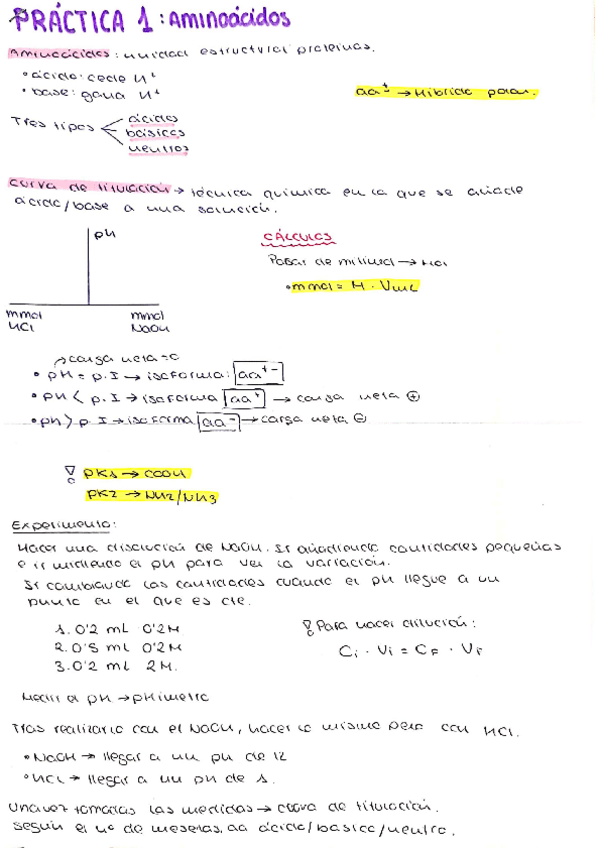 PRÁCTICA 1: Aminoácidos
Aminoácidos: unidad estructural proteínas.
• ácido: cede H⁺
• base: gana H⁺
aa± → Híbrido polar.
Tres tipos
ácidos
básicos
neutros
Curva de titulación → técnica química en la que se añade
ácido/base a una solución.
pH
mmol HCl
mmol NaOH
CÁLCULOS
Pasar de milimol → HCl
• mmol = M · VmL
→ carga neta = 0
• pH = p.I → isoforma: aa⁺⁻
• pH < p.I → isoforma aa⁺ → carga neta ⊕
• pH > p.I → isoforma aa⁻ → carga neta ⊖
PK1 → COOH
PK2 → NH2/NH3
Experimento:
Hacer una disolución de NaOH. Ir añadiendo cantidades pequeñas
e ir midiendo el pH para ver la variación.
Ir cambiando las cantidades cuando el pH llegue a un
punto en el que es cte.
1. 0'2 mL 0'2M
2. 0'5 mL 0'2M
3. 0'2 mL 2M.
! Para hacer dilución:
Ci · Vi = CF · VF
Medir el pH → pHímetro
Tras realizarlo con el NaOH, hacer lo mismo pero con HCl.
• NaOH → llegar a un pH de 12
• HCl → llegar a un pH de 1.
Una vez tomadas las medidas → curva de titulación.
Según el nº de mesetas, aa ácido/básico/neutro.